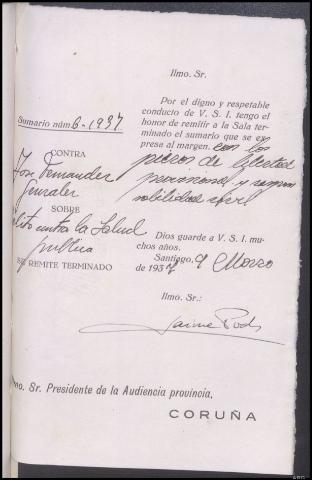 Ilmo. Sr.
Por el digno y respetable
conducto de V. S. I. tengo el
honor de remitir a la Sala ter-
minado el sumario que se ex-
presa al margen. con las
piezas de libertad
provisional y respon
sabilidad civil
Dios guarde a V. S. I. mu-
chos años.
Santiago, 9 Marzo
de 1937
Ilmo. Sr.:
Jaime
Sumario núm. 6-1937
CONTRA
José Fernandez
Gonzalez
SOBRE
delito contra la Salud
publica
SE REMITE TERMINADO
Ilmo. Sr. Presidente de la Audiencia provincia.
CORUÑA